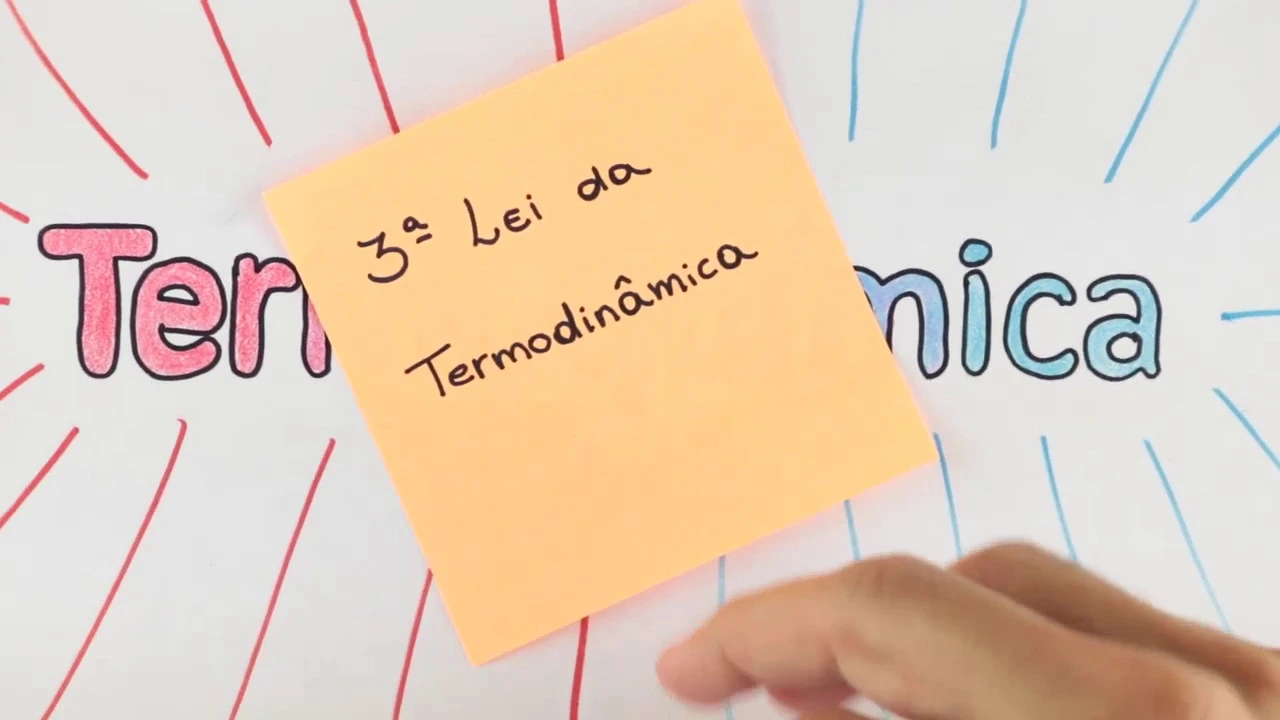 3ª Lei da
Termodinâmica
Ter mica